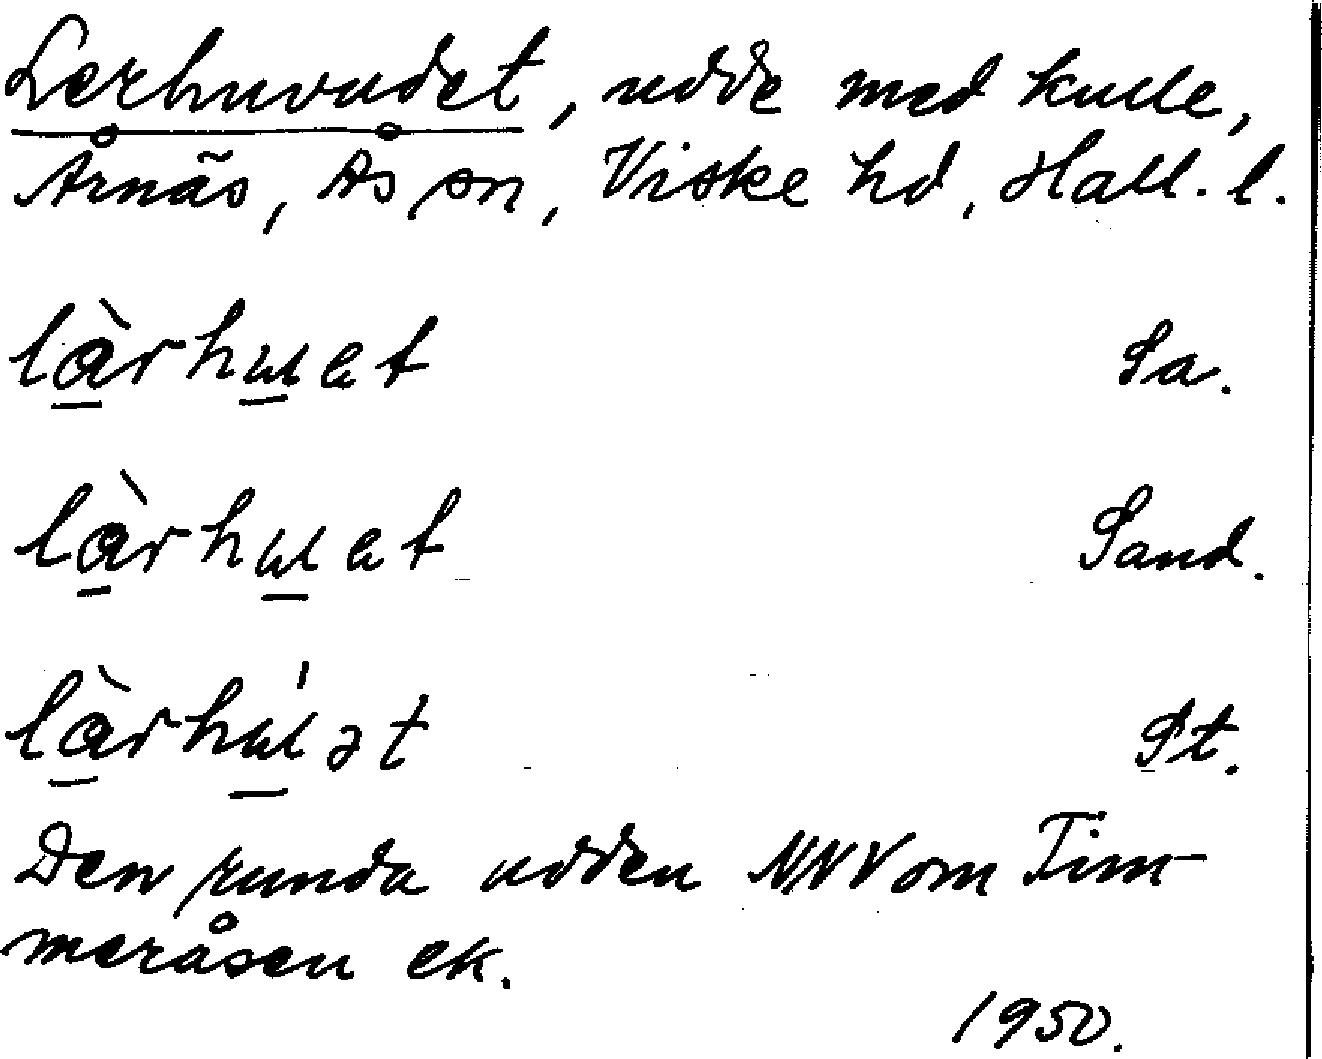 Lerhuvudet, udde med kulle,
Årnäs, Ås sn, Viske hd, Hall. l.
làrhuet Sa.
làrhuet Sand.
làrhu̍ət St.
Den runda udden NNV om Tim-
meråsen ek.
1950.